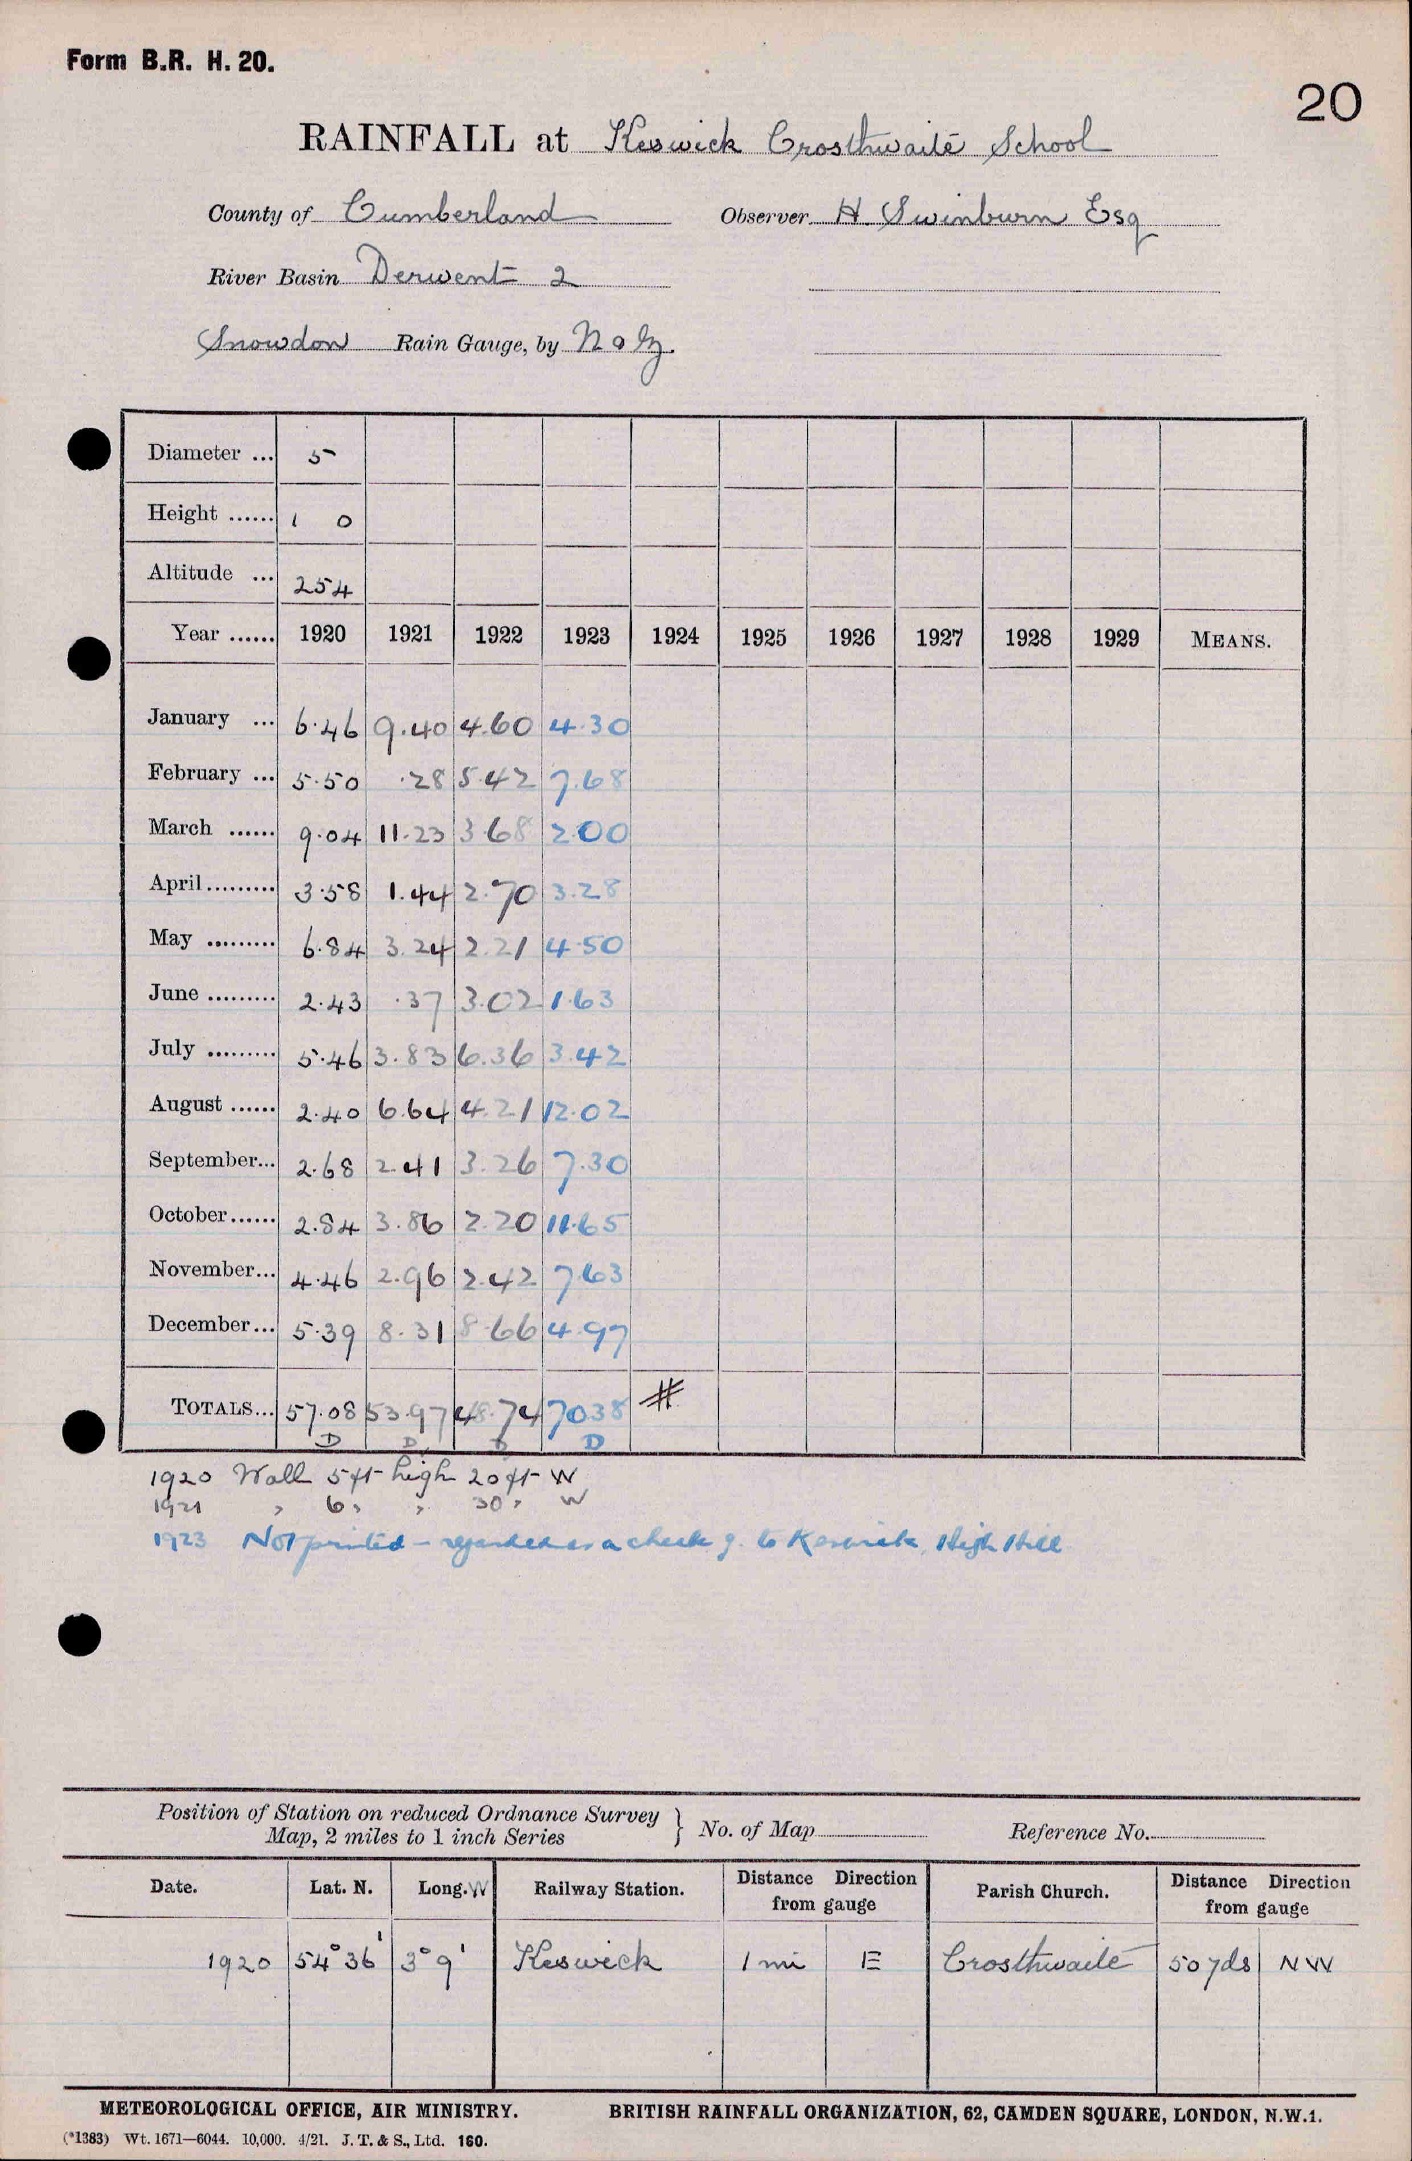 Form B.R. H. 20.
20
RAINFALL at Keswick Crosthwaite School
County of Cumberland Observer H. Swinburn Esq
River Basin Derwent 2
Snowdon Rain Gauge, by N & Z.
Diameter ... 5
Height ...... 1 0
Altitude ... 254
Year ...... 1920 1921 1922 1923 1924 1925 1926 1927 1928 1929 MEANS.
January ... 6.46 9.40 4.60 4.30
February ... 5.50 .28 5.42 7.68
March ...... 9.04 11.23 3.68 2.00
April ......... 3.58 1.44 2.70 3.28
May ......... 6.84 3.24 2.21 4.50
June ......... 2.43 .37 3.02 1.63
July ......... 5.46 3.83 6.36 3.42
August ...... 2.40 6.64 4.21 12.02
September... 2.68 2.41 3.26 7.30
October...... 2.84 3.86 2.20 11.65
November... 4.46 2.96 2.42 7.63
December... 5.39 8.31 8.66 4.97
TOTALS... 57.08 53.97 48.74 70.38 #
D D D D
1920 Wall 5 ft high 20 ft W
1921 " 6 " " 30 " W
1923 Not printed - regarded as a check g. to Keswick, High Hill
Position of Station on reduced Ordnance Survey Map, 2 miles to 1 inch Series } No. of Map Reference No.
Date. Lat. N. Long. W Railway Station. Distance Direction from gauge Parish Church. Distance Direction from gauge
1920 54° 36' 3° 9' Keswick 1 mi E Crosthwaite 50 yds NW
METEOROLOGICAL OFFICE, AIR MINISTRY. BRITISH RAINFALL ORGANIZATION, 62, CAMDEN SQUARE, LONDON, N.W.1.
(*1383) Wt. 1671—6044. 10,000. 4/21. J. T. & S., Ltd. 160.